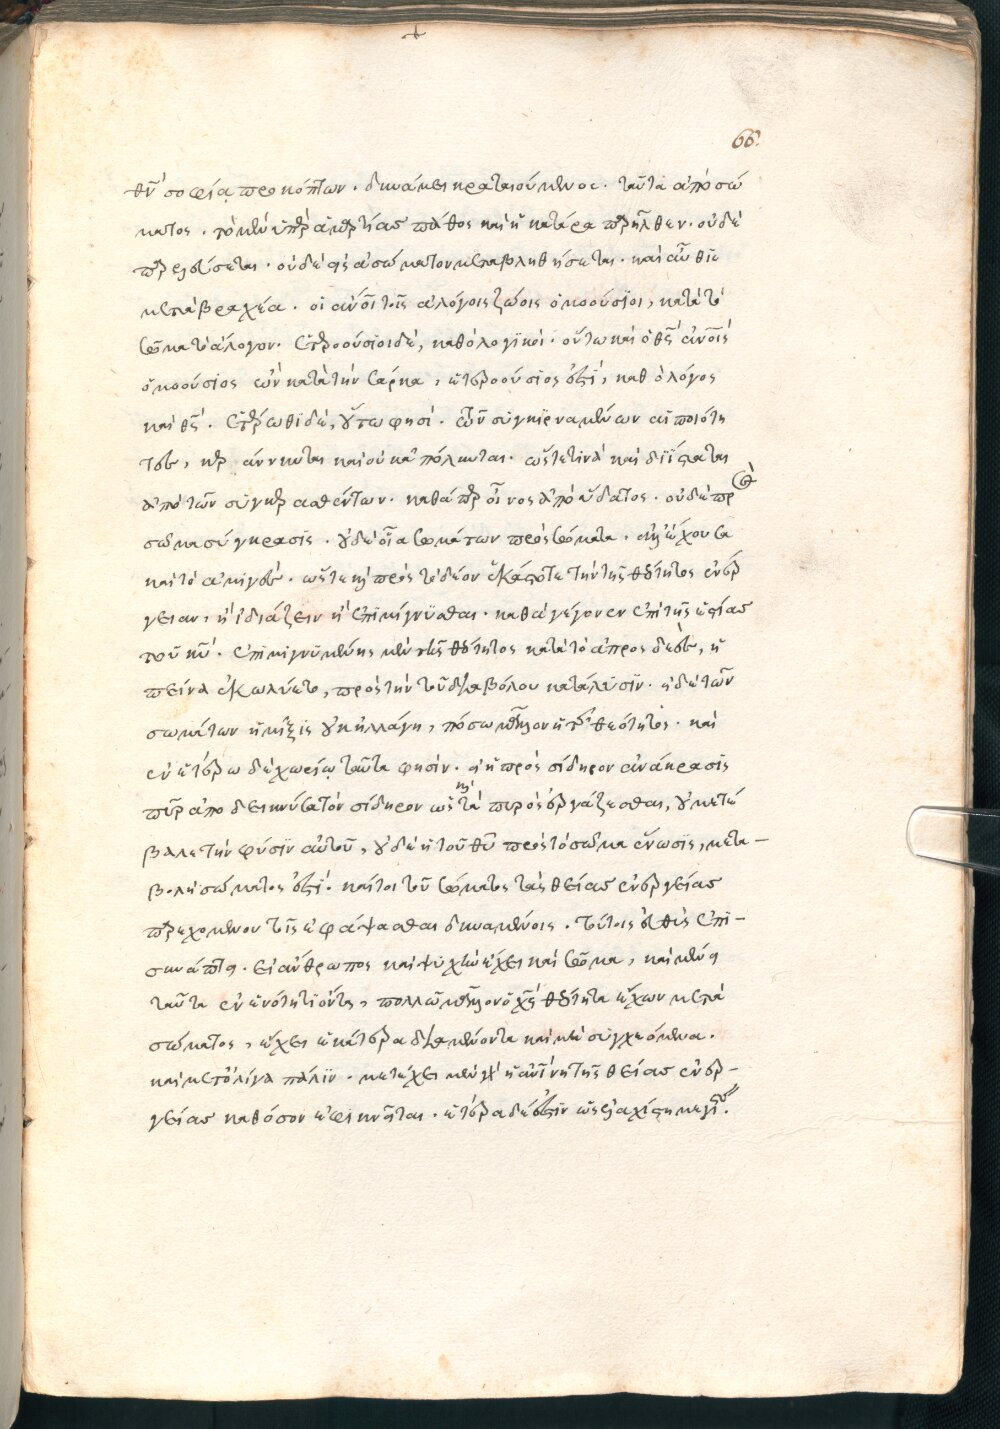 66.
θῦ σοφία προκόπτων. δυνάμει κραταιούμενος. ταῦτα ἀπὸ σώ
ματος. τὸ μὲν ὑπὲρ ἁμαρτίας πάθος καὶ ἡ κατάρα παρῆλθεν. οὐδὲ
οὐδὲ εἰς ἀσώματον μεταβληθήσεται. καὶ αὖθις
μετὰ βραχέα. οἱ ἄνοι τοῖς ἀλόγοις ζώοις ὁμοούσιοι, κατὰ τὸ
σῶμα τὸ ἄλογον. ἑτεροούσιοι δὲ, καθὸ λογικοί. οὕτω καὶ ὁ θς ἀνοις
ὁμοούσιος ὢν κατὰ τὴν σάρκα, ἑτεροούσιός ἐστι, καθὸ λόγος
καὶ θς. ἑτέρωθι δὲ, οὕτω φησί. τῶν συγκιρναμένων αἱ ποιότη
τες, κεράννυνται καὶ οὐκ ἀπόλλυνται. ὥστε τινὰ καὶ διίσταται
ἀπὸ τῶν συγκερασθέντων. καθάπερ οἶνος ἀπὸ ὕδατος. οὐδὲ πρὸς
σῶμα σύγκρασις. οὐδὲ οἵα σωμάτων πρὸς σώματα. ἀλλ' ἔχουσα
καὶ τὸ ἀμιγές. ὥστε καὶ πρὸς τὸ δέον ἑκάστοτε τὴν τῆς θεότητος ἐνέρ
γειαν, ἢ ἰδιάζειν ἢ ἐπιμίγνυσθαι. καθὰ γέγονεν ἐπὶ τῆς νηστείας
τοῦ κῦ. ἐπιμιγνυμένης μὲν τῆς θεότητος κατὰ τὸ ἀπροσδεὲς, ἡ
πεῖνα ἐκωλύετο, πρὸς τὴν τοῦ διαβόλου κατάλυσιν. εἰ δὲ τῶν
σωμάτων ἡ μῖξις οὐκ ἠλλάγη, πόσω μᾶλλον ἡ τῆς θεότητος. καὶ
ἐν ἑτέρω δὲ χωρίω ταῦτα φησίν. εἰ ἡ πρὸς σίδηρον ἀνάκρασις
πῦρ ἀποδεικνῦσα τὸν σίδηρον ὥστε καὶ τὰ πυρὸς ἐργάζεσθαι, οὐ μετέ
βαλε τὴν φύσιν αὐτοῦ, οὐδὲ ἡ τοῦ θῦ πρὸς τὸ σῶμα ἕνωσις, μετα–
βολὴ σώματος ἐστί. καίτοι τοῦ σώματος τὰς θείας ἐνεργείας
παρεχομένου τοῖς ἐφάψασθαι δυναμένοις. τούτοις εὐθὺς ἐπι–
συνάπτει. εἰ ἄνθρωπος καὶ ψυχὴν ἔχει καὶ σῶμα, καὶ μένει
ταῦτα ἐν ἑνότητι ὄντα, πολλῶ μᾶλλον ὁ χς θεότητα ἔχων μετὰ
σώματος, ἔχει ἑκάτερα διαμένοντα καὶ μὴ συγχεόμενα.
καὶ μετ' ὀλίγα πάλιν. μετέχει μὲν γὰρ ἡ ἀνίνη τῆς θείας ἐνερ–
γείας καθόσον ἐφικνεῖται. ἑτέρα δέ ἐστιν ὡς ἐλαχίστη μεγίστης.